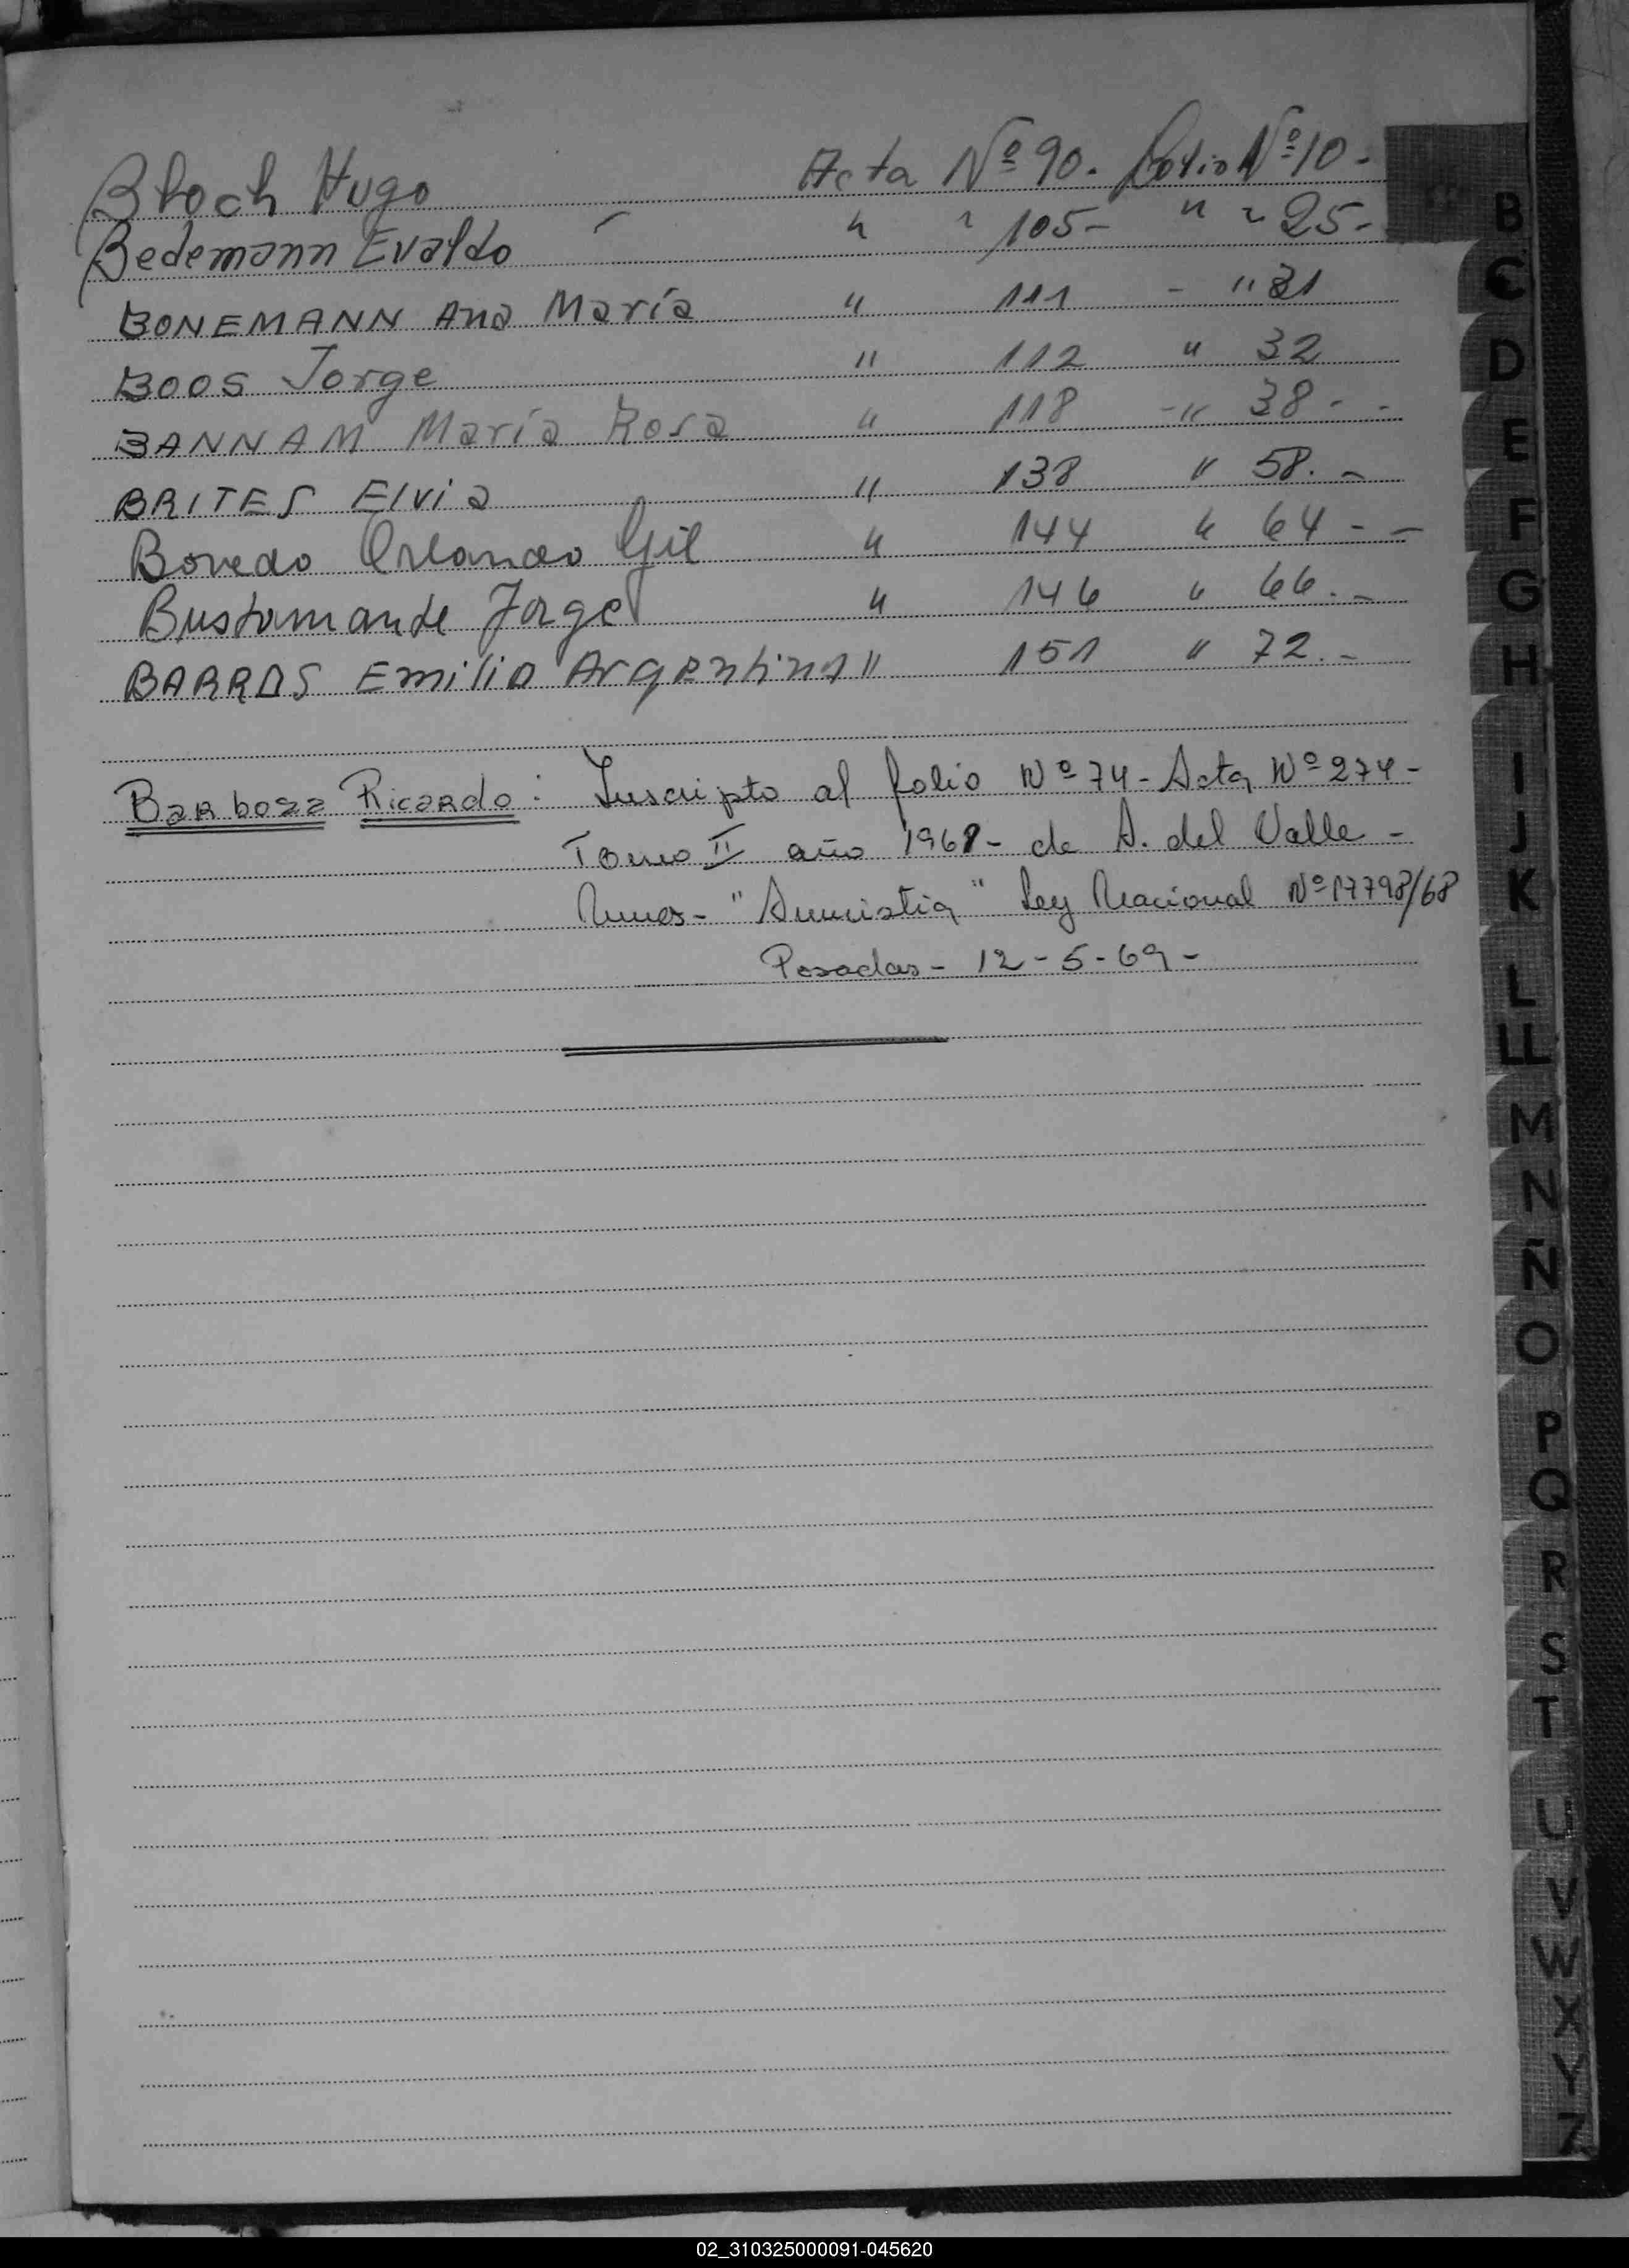 Bloch Hugo Acta Nº 90. Folio Nº 10 -
Bedemann Evaldo " " 105 - " " 25 -
BONEMANN Ana María " 111 - " 31
BOOS Jorge " 112 " 32
BANNAM María Rosa " 118 - " 38 - -
BRITES Elvia " 138 " 58. -
Bovedo Orlando Gil " 144 " 64 - -
Bustamante Jorge " 146 " 66. -
BARROS Emilio Argentino " 151 " 72. -
Barboza Ricardo: Inscripto al folio Nº 74 - Acta Nº 274 -
Tomo II año 1968 - de A. del Valle -
"Amnistia" Ley Nacional Nº 17798/68
Posadas - 12 - 5 - 69 -
B
C
D
E
F
G
H
I
J
K
L
LL
M
N
Ñ
O
P
Q
R
S
T
U
V
W
X
Y
Z
02_310325000091-045620